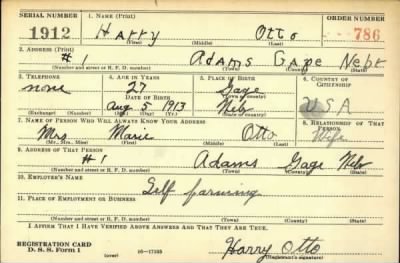 SERIAL NUMBER 1. NAME (Print) ORDER NUMBER
1912 Harry Otto 786
(First) (Middle) (Last)
2. ADDRESS (Print)
#1 Adams Gage Nebr
(Number and street or R. F. D. number) (Town) (County) (State)
3. TELEPHONE 4. AGE IN YEARS 5. PLACE OF BIRTH 6. COUNTRY OF CITIZENSHIP
none 27 Gage
DATE OF BIRTH (Town or county)
Aug 5 1913 Nebr USA
(Exchange) (Number) (Mo.) (Day) (Yr.) (State or country)
7. NAME OF PERSON WHO WILL ALWAYS KNOW YOUR ADDRESS 8. RELATIONSHIP OF THAT PERSON
Mrs Marie Otto Wife
(Mr., Mrs., Miss) (First) (Middle) (Last)
9. ADDRESS OF THAT PERSON
#1 Adams Gage Nebr
(Number and street or R. F. D. number) (Town) (County) (State)
10. EMPLOYER'S NAME
Self farming
11. PLACE OF EMPLOYMENT OR BUSINESS
(Number and street or R. F. D. number) (Town) (County) (State)
I AFFIRM THAT I HAVE VERIFIED ABOVE ANSWERS AND THAT THEY ARE TRUE.
REGISTRATION CARD
D. S. S. Form 1 (over) 16—17105 Harry Otto
(Registrant's signature)